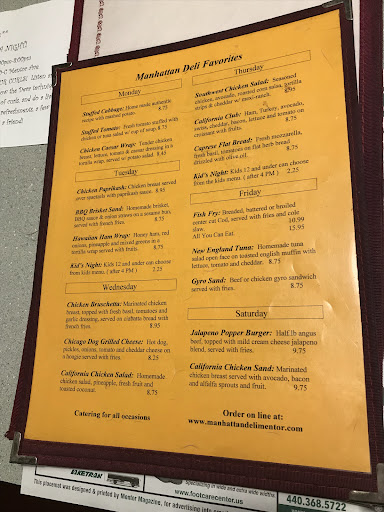 Manhattan Deli Favorites
Monday
Stuffed Cabbage: Home made authentic
recipe with mashed potato. 8.75
Stuffed Tomato: Fresh tomato stuffed with
chicken or tuna salad w/ cup of soup. 8.75
Chicken Caesar Wrap: Tender chicken
breast, lettuce, tomato & caesar dressing in a
tortilla wrap, served w/ potato salad. 8.45
Tuesday
Chicken Paprikash: Chicken breast served
over spaetzels with paprikash sauce. 8.95
BBQ Brisket Sand: Homemade brisket,
BBQ sauce & onion straws on a sesame bun,
served with french fries. 8.75
Hawaiian Ham Wrap: Honey ham, red
onions, pineapple and mixed greens in a
tortilla wrap served with fruits. 8.75
Kid's Night: Kids 12 and under can choose
from kids menu. ( after 4 PM ) 2.25
Wednesday
Chicken Bruschetta: Marinated chicken
breast, topped with fresh basil, tomatoes and
garlic dressing, served on ciabatta bread with
french fries. 8.95
Chicago Dog Grilled Cheese: Hot dog,
pickles, onions, tomato and cheddar cheese on
a hoagie served with fries. 8.25
California Chicken Salad: Homemade
chicken salad, pineapple, fresh fruit and
toasted coconut. 8.75
Catering for all occasions
Thursday
Southwest Chicken Salad: Seasoned
chicken, avocado, roasted corn salsa, tortilla
strips & cheddar w/ mexi-ranch. 8.95
California Club: Ham, Turkey, avocado,
swiss, cheddar, bacon, lettuce and tomato on
croissant with fruits. 8.75
Caprese Flat Bread: Fresh mozzarella,
fresh basil, tomatoes on flat herb bread
drizzled with olive oil. 8.75
Kid's Night: Kids 12 and under can choose
from the kids menu. ( after 4 PM ) 2.25
Friday
Fish Fry: Breaded, battered or broiled
center cut Cod, served with fries and cole
slaw. 10.99
All You Can Eat. 15.95
New England Tuna: Homemade tuna
salad open face on toasted english muffin with
lettuce, tomato and cheddar. 8.75
Gyro Sand: Beef or chicken gyro sandwich
served with fries. 8.75
Saturday
Jalapeno Popper Burger: Half lb angus
beef, topped with mild cream cheese jalapeno
blend, served with fries. 9.75
California Chicken Sand: Marinated
chicken breast served with avocado, bacon
and alfalfa sprouts and fruit. 9.75
Order on line at:
www.manhattandelimentor.com
Specializing in wide and extra wide widths
www.footcarecenter.us
440.368.5722
This placemat was designed & printed by Mentor Magazine, for advertising info